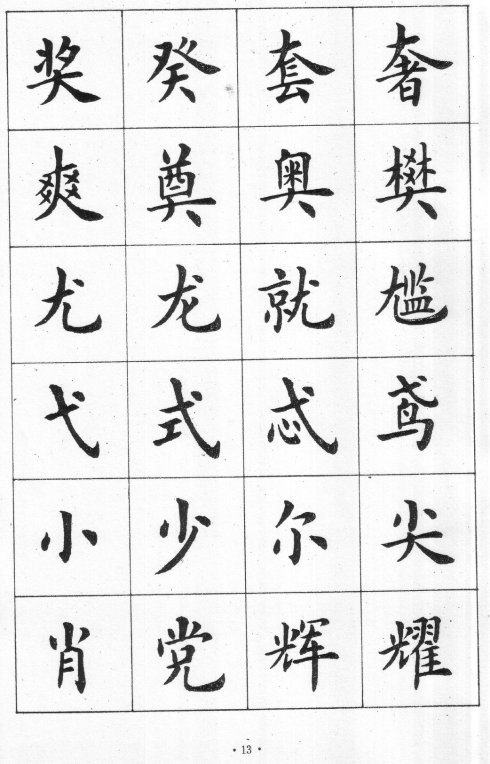 奖癸套奢
爽奠奥樊
尤龙就尴
弋式忒鸢
小少尔尖
肖党辉耀
·13·